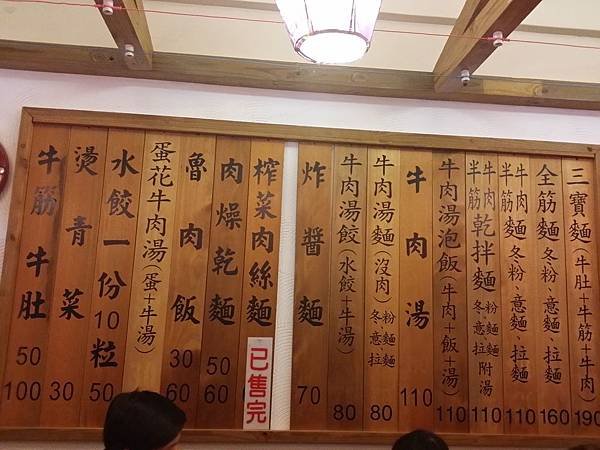 三寶麵(牛肚+牛筋+牛肉) 190
全筋麵 冬粉、意麵、拉麵 160
牛肉半筋麵 冬粉、意麵、拉麵 110
牛肉半筋乾拌麵 冬粉、意麵、拉麵 附湯 110
牛肉湯泡飯(牛肉+飯+湯) 110
牛肉湯 110
牛肉湯麵(沒肉) 冬粉、意麵、拉麵 80
牛肉湯餃(水餃+牛湯) 80
炸醬麵 70
榨菜肉絲麵 已售完
肉燥乾麵 50 60
魯肉飯 30 60
蛋花牛肉湯(蛋+牛湯)
水餃一份10粒 50
燙青菜 30
牛筋牛肚 50 100